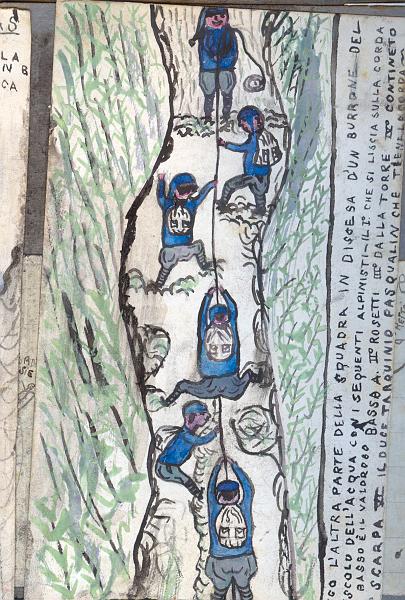 AS
LA
N B
CA
GO L'ALTRA PARTE DELLA SQUADRA IN DISCESA D'UN BURRONE DEL
SCOLO DELL'ACQUA CON I SEQUENTI ALPINISTI-IL I° CHE SI LISCIA SULLA CORDA
BASSO È IL VALOROSO BASSO A. II° ROSETTI III° DALLA TORRE IV° CONTINETO
SCARPA VI IL DUCE TARQUINIO PASQUALIN CHE TIENE LA CORDA